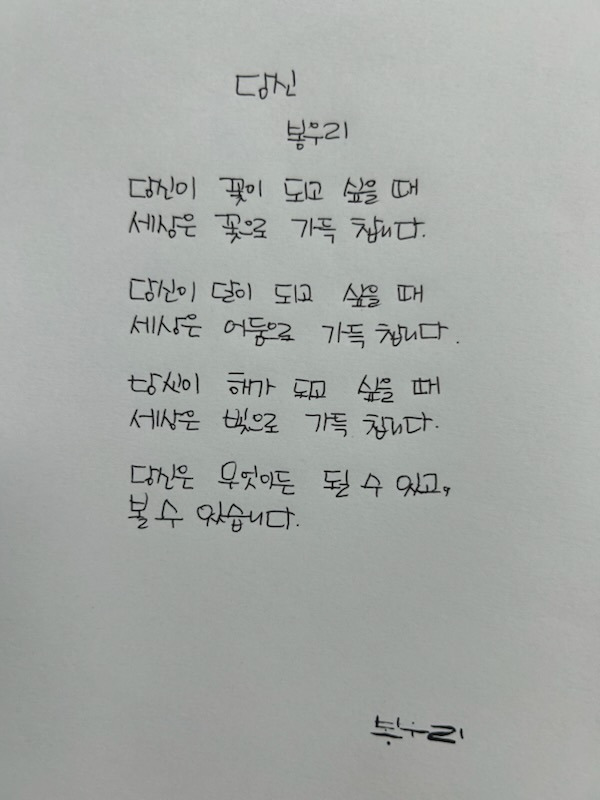 당신
봉우리
당신이 꽃이 되고 싶을 때
세상은 꽃으로 가득 찹니다.
당신이 달이 되고 싶을 때
세상은 어둠으로 가득 찹니다.
당신이 해가 되고 싶을 때
세상은 빛으로 가득 찹니다.
당신은 무엇이든 될 수 있고,
볼 수 있습니다.
봉우리